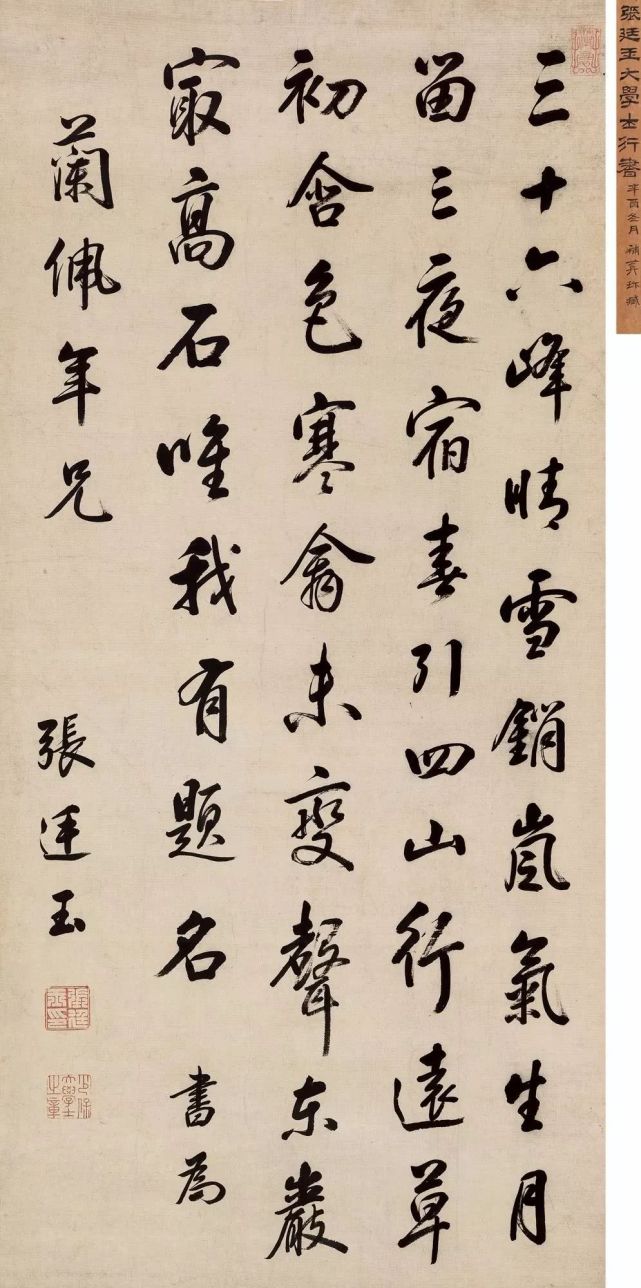 張廷玉大學士行書 辛酉冬月 珍藏
三十六峰晴雪銷嵐氣生月
留三夜宿春引四山行遠草
初含色寒禽未變聲東巖
最高石唯我有題名 書為
蘭佩年兄
張廷玉